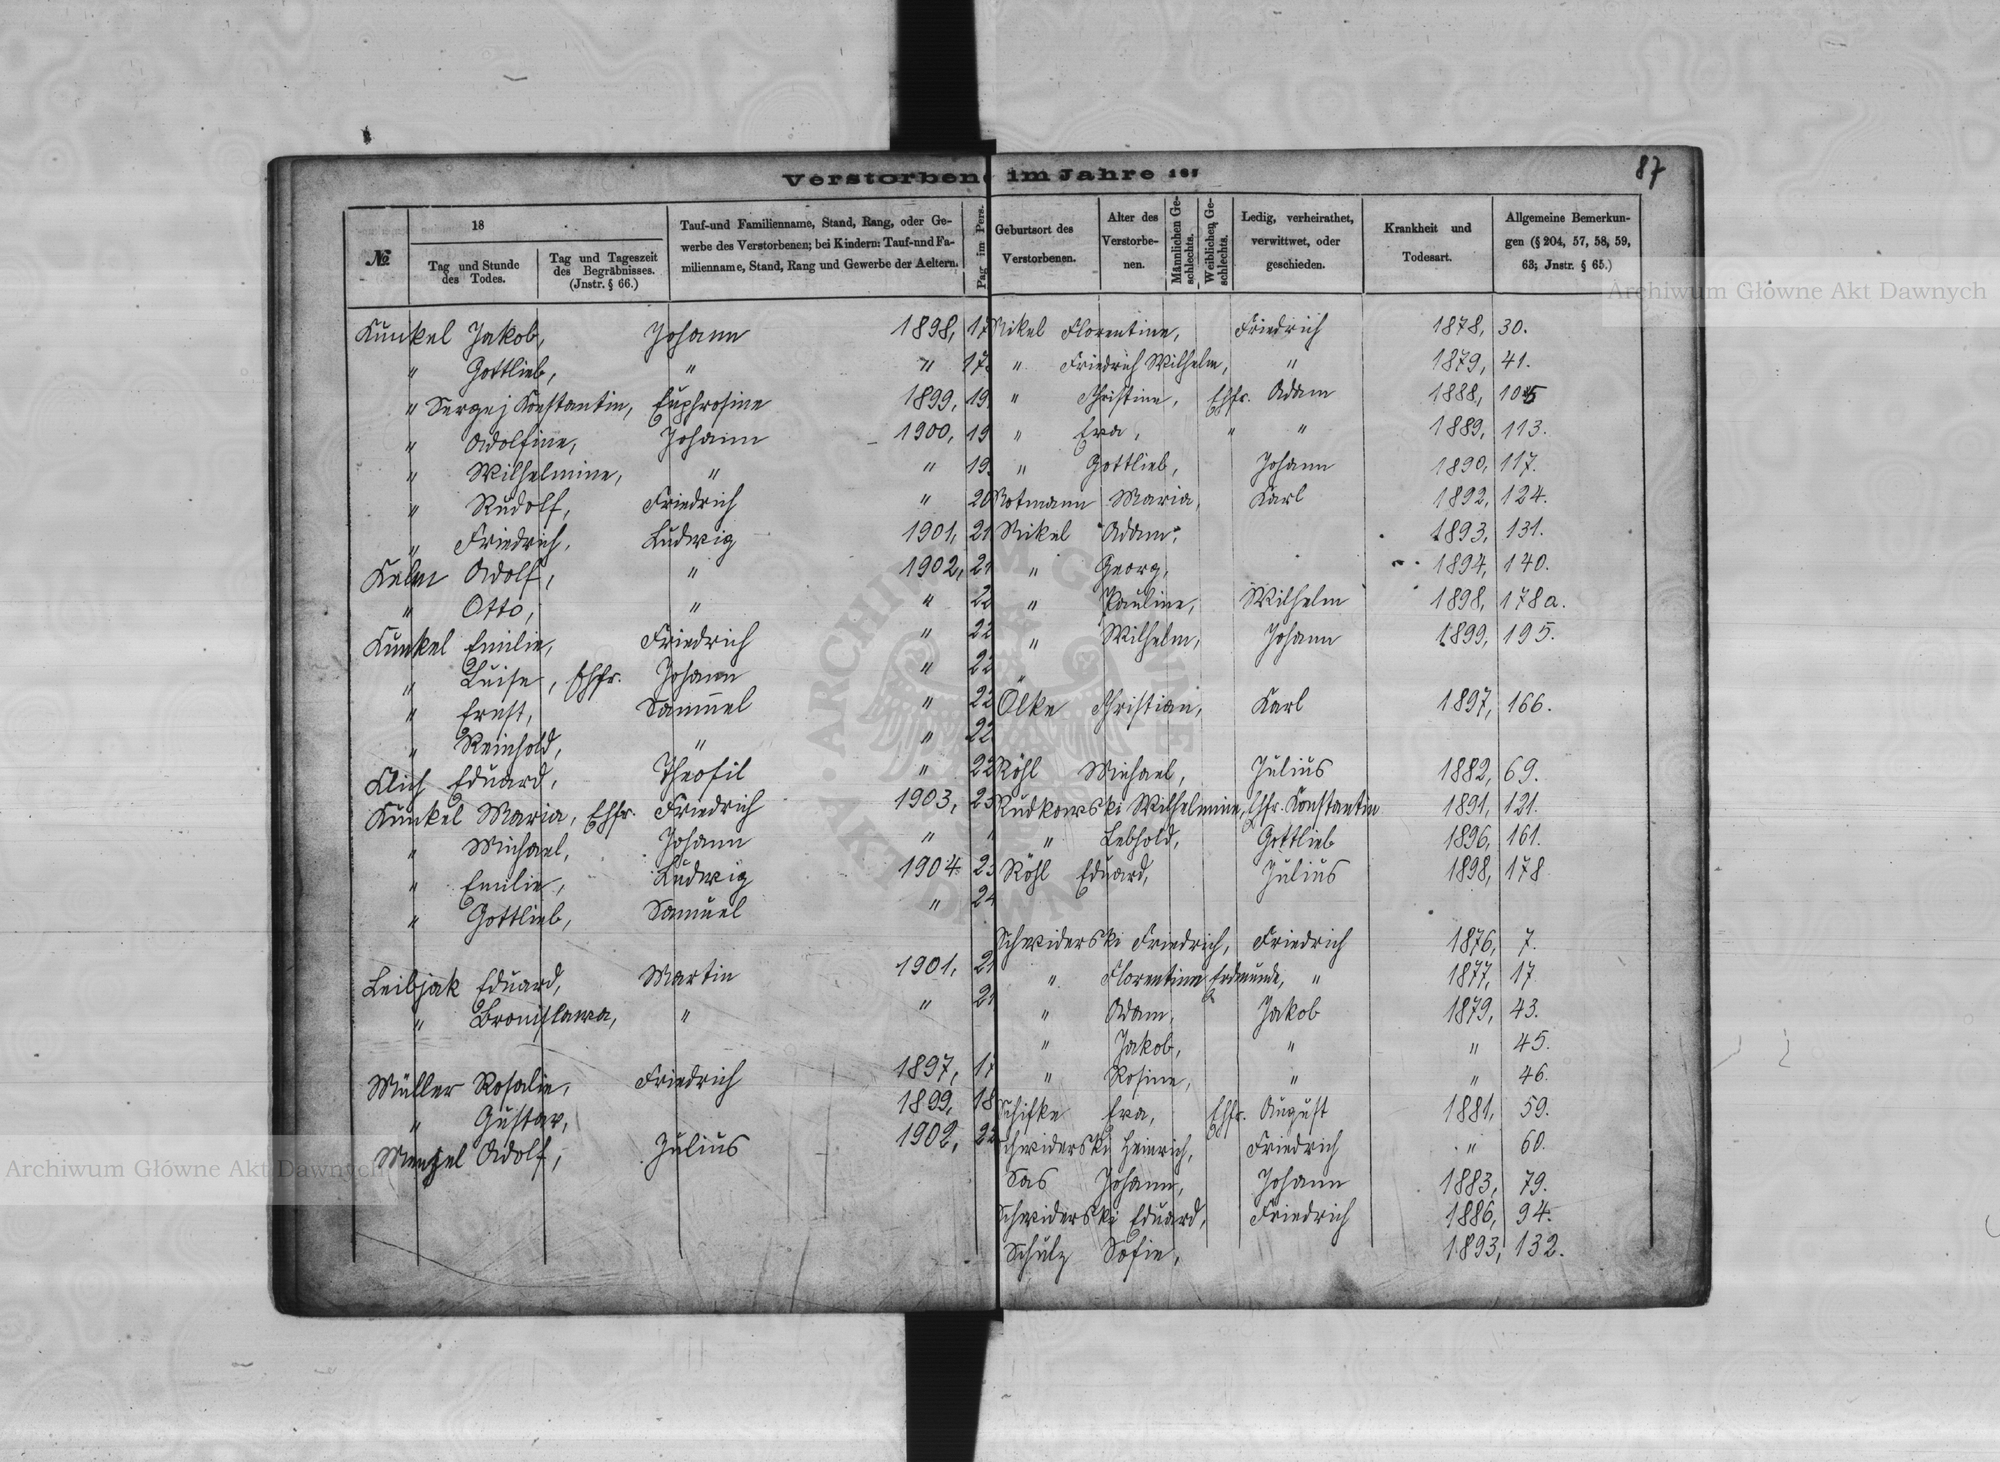 87
Verstorbene im Jahre 187
№
18
Tag und Stunde des Todes.
Tag und Tageszeit des Begräbnisses. (Jnstr. § 66.)
Tauf-und Familienname, Stand, Rang, oder Ge-
werbe des Verstorbenen; bei Kindern: Tauf-und Fa-
milienname, Stand, Rang und Gewerbe der Aeltern.
Pag im Pers.
Kunkel Jakob, Johann 1898, 17
" Gottlieb, " " 17
" Sergej Konstantin, Euphrosine 1899, 19
" Adolfine, Johann 1900, 19
" Wilhelmine, " " 19
" Rudolf, Friedrich " 20
" Friedrich, Ludwig 1901, 21
Kelm Adolf, " 1902, 21
" Otto, " " 22
Kunkel Emilie, Friedrich " 22
" Luise, Ehfr. Johann " 22
" Ernst, Samuel " 22
" Reinhold, " " 22
Eduard, Theofil " 22
Kunkel Maria, Ehfr. Friedrich 1903, 23
" Michael, Johann " "
" Emilie, Ludwig 1904 23
" Gottlieb, Samuel " 24
Leibjak Eduard, Martin 1901, 21
" Bronisława, " " 21
Müller Rosalie, Friedrich 1897, 17
" Gustav, 1899, 18
Menzel Adolf, Julius 1902, 22
Geburtsort des Verstorbenen.
Alter des Verstorbe-nen.
Männlichen Ge-schlechts.
Weiblichen Ge-schlechts.
Ledig, verheirathet, verwittwet, oder geschieden.
Krankheit und Todesart.
Allgemeine Bemerkun-gen (§ 204, 57, 58, 59, 63; Jnstr. § 65.)
Nikel Florentine, Friedrich 1878, 30.
" Friedrich Wilhelm, " 1879, 41.
" Christine, Ehfr. Adam 1888, 105
" Eva, " " 1889, 113.
" Gottlieb, Johann 1890, 117.
Notmann Maria, Karl 1892, 124.
Nikel Adam, 1893, 131.
" Georg, 1894, 140.
" Pauline, Wilhelm 1898, 178a.
" Wilhelm, Johann 1899, 195.
"
Ölke Christian, Karl 1897, 166.
Röhl Michael, Julius 1882, 69.
Rudkowski Wilhelmine, Ehfr. Konstantin 1891, 121.
" Lebhold, Gottlieb 1896, 161.
Röhl Eduard, Julius 1898, 178
Schwiderski Friedrich, Friedrich 1876, 7.
" Florentine Erdmunde, " 1877, 17
" Adam, Jakob 1879, 43.
" Jakob, " " 45.
" Rosine, " " 46.
Schifke Eva, Ehfr. August 1881, 59.
Schwiderski Heinrich, Friedrich " 60.
Sas Johann, Johann 1883, 79.
Schwiderski Eduard, Friedrich 1886, 94.
Schulz Sofie, 1893, 132.
Archiwum Główne Akt Dawnych
Archiwum Główne Akt Dawnych